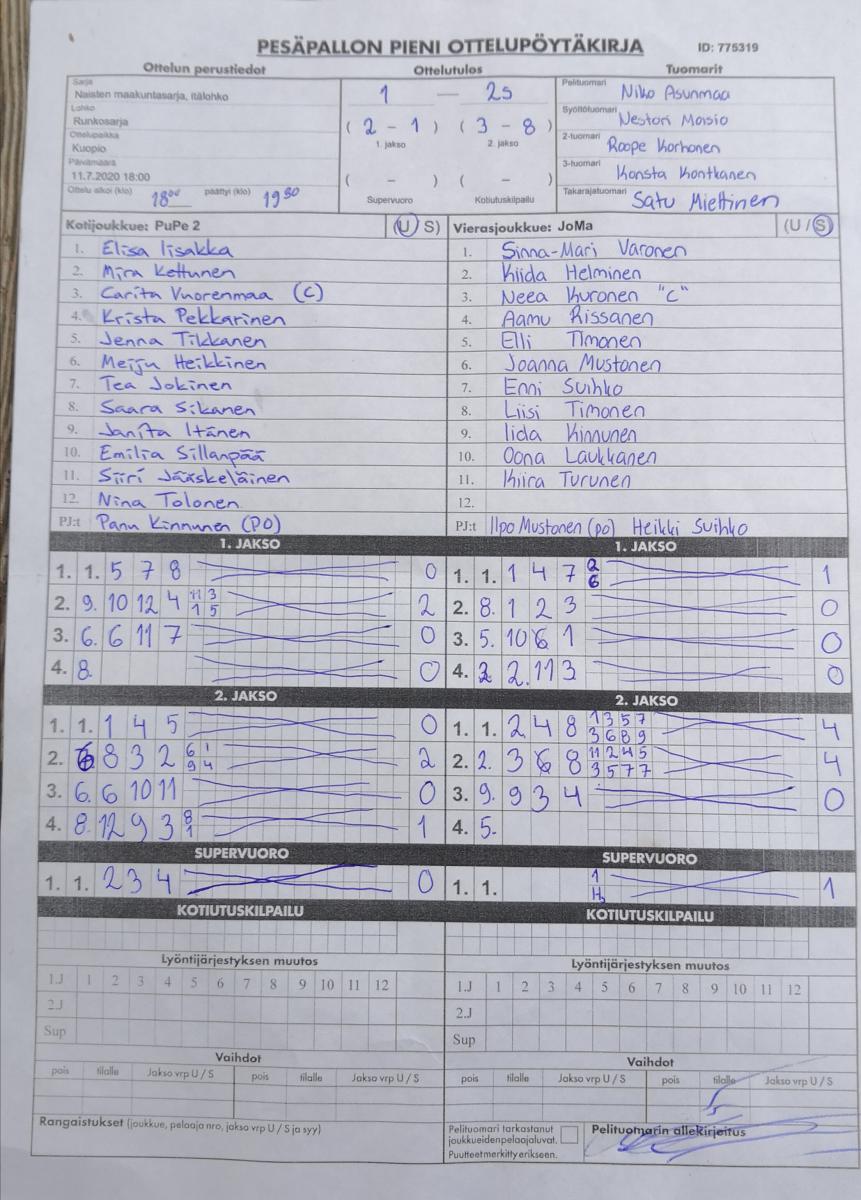 PESÄPALLON PIENI OTTELUPÖYTÄKIRJA ID: 775319
Ottelun perustiedot
Sarja
Naisten maakuntasarja, itälohko
Lohko
Runkosarja
Ottelupaikka
Kuopio
Päivämäärä
11.7.2020 18:00
Ottelu alkoi (klo) 18 00 päättyi (klo) 19 30
Ottelutulos
1 — 2s
( 2 - 1 ) ( 3 - 8 )
1. jakso 2. jakso
( - ) ( - )
Supervuoro Kotiutuskilpailu
Tuomarit
Pelituomari Niko Asunmaa
Syöttötuomari Nestori Moisio
2-tuomari Roope Korhonen
3-tuomari Konsta Kontkanen
Takarajatuomari Satu Miettinen
Kotijoukkue: PuPe 2 (U/S)
1. Elisa Iisakka
2. Mira Kettunen
3. Carita Vuorenmaa (C)
4. Krista Pekkarinen
5. Jenna Tikkanen
6. Meiju Heikkinen
7. Tea Jokinen
8. Saara Sikanen
9. Janita Itänen
10. Emilia Sillanpää
11. Siiri Jääskeläinen
12. Nina Tolonen
PJ:t Panu Kinnunen (PO)
Vierasjoukkue: JoMa (U/S)
1. Sinna-Mari Varonen
2. Kiida Helminen
3. Neea Kuronen "C"
4. Aamu Rissanen
5. Elli Timonen
6. Joanna Mustonen
7. Enni Suihko
8. Liisi Timonen
9. Iida Kinnunen
10. Oona Laukkanen
11. Kiira Turunen
12.
PJ:t Ilpo Mustonen (po) Heikki Suihko
1. JAKSO
1. 1. 5 7 8 0
2. 9. 10 12 4 11 3 2
1 5
3. 6. 6 11 7 0
4. 8. 0
1. JAKSO
1. 1. 1 4 7 2 1
6
2. 8. 1 2 3 0
3. 5. 10 6 1 0
4. 2 2. 11 3 0
2. JAKSO
1. 1. 1 4 5 0
2. 6 8 3 2 6 1 2
9 4
3. 6. 6 10 11 0
4. 8. 12 9 3 8 1
1
2. JAKSO
1. 1. 2 4 8 1 3 5 7 4
3 6 8 9
2. 2. 3 6 8 11 2 4 5 4
3 5 7 7
3. 9. 9 3 4 0
4. 5.
SUPERVUORO
1. 1. 2 3 4 0
SUPERVUORO
1. 1. 1 1
KOTIUTUSKILPAILU
KOTIUTUSKILPAILU
Lyöntijärjestyksen muutos
1.J 1 2 3 4 5 6 7 8 9 10 11 12
2.J
Sup
Lyöntijärjestyksen muutos
1.J 1 2 3 4 5 6 7 8 9 10 11 12
2.J
Sup
Vaihdot
pois tilalle Jakso vrp U / S pois tilalle Jakso vrp U / S
Vaihdot
pois tilalle Jakso vrp U / S pois tilalle Jakso vrp U / S
Rangaistukset (joukkue, pelaaja nro, jakso vrp U / S ja syy)
Pelituomari tarkastanut
joukkueidenpelaajaluvat.
Puutteet merkitty erikseen.
Pelituomarin allekirjoitus